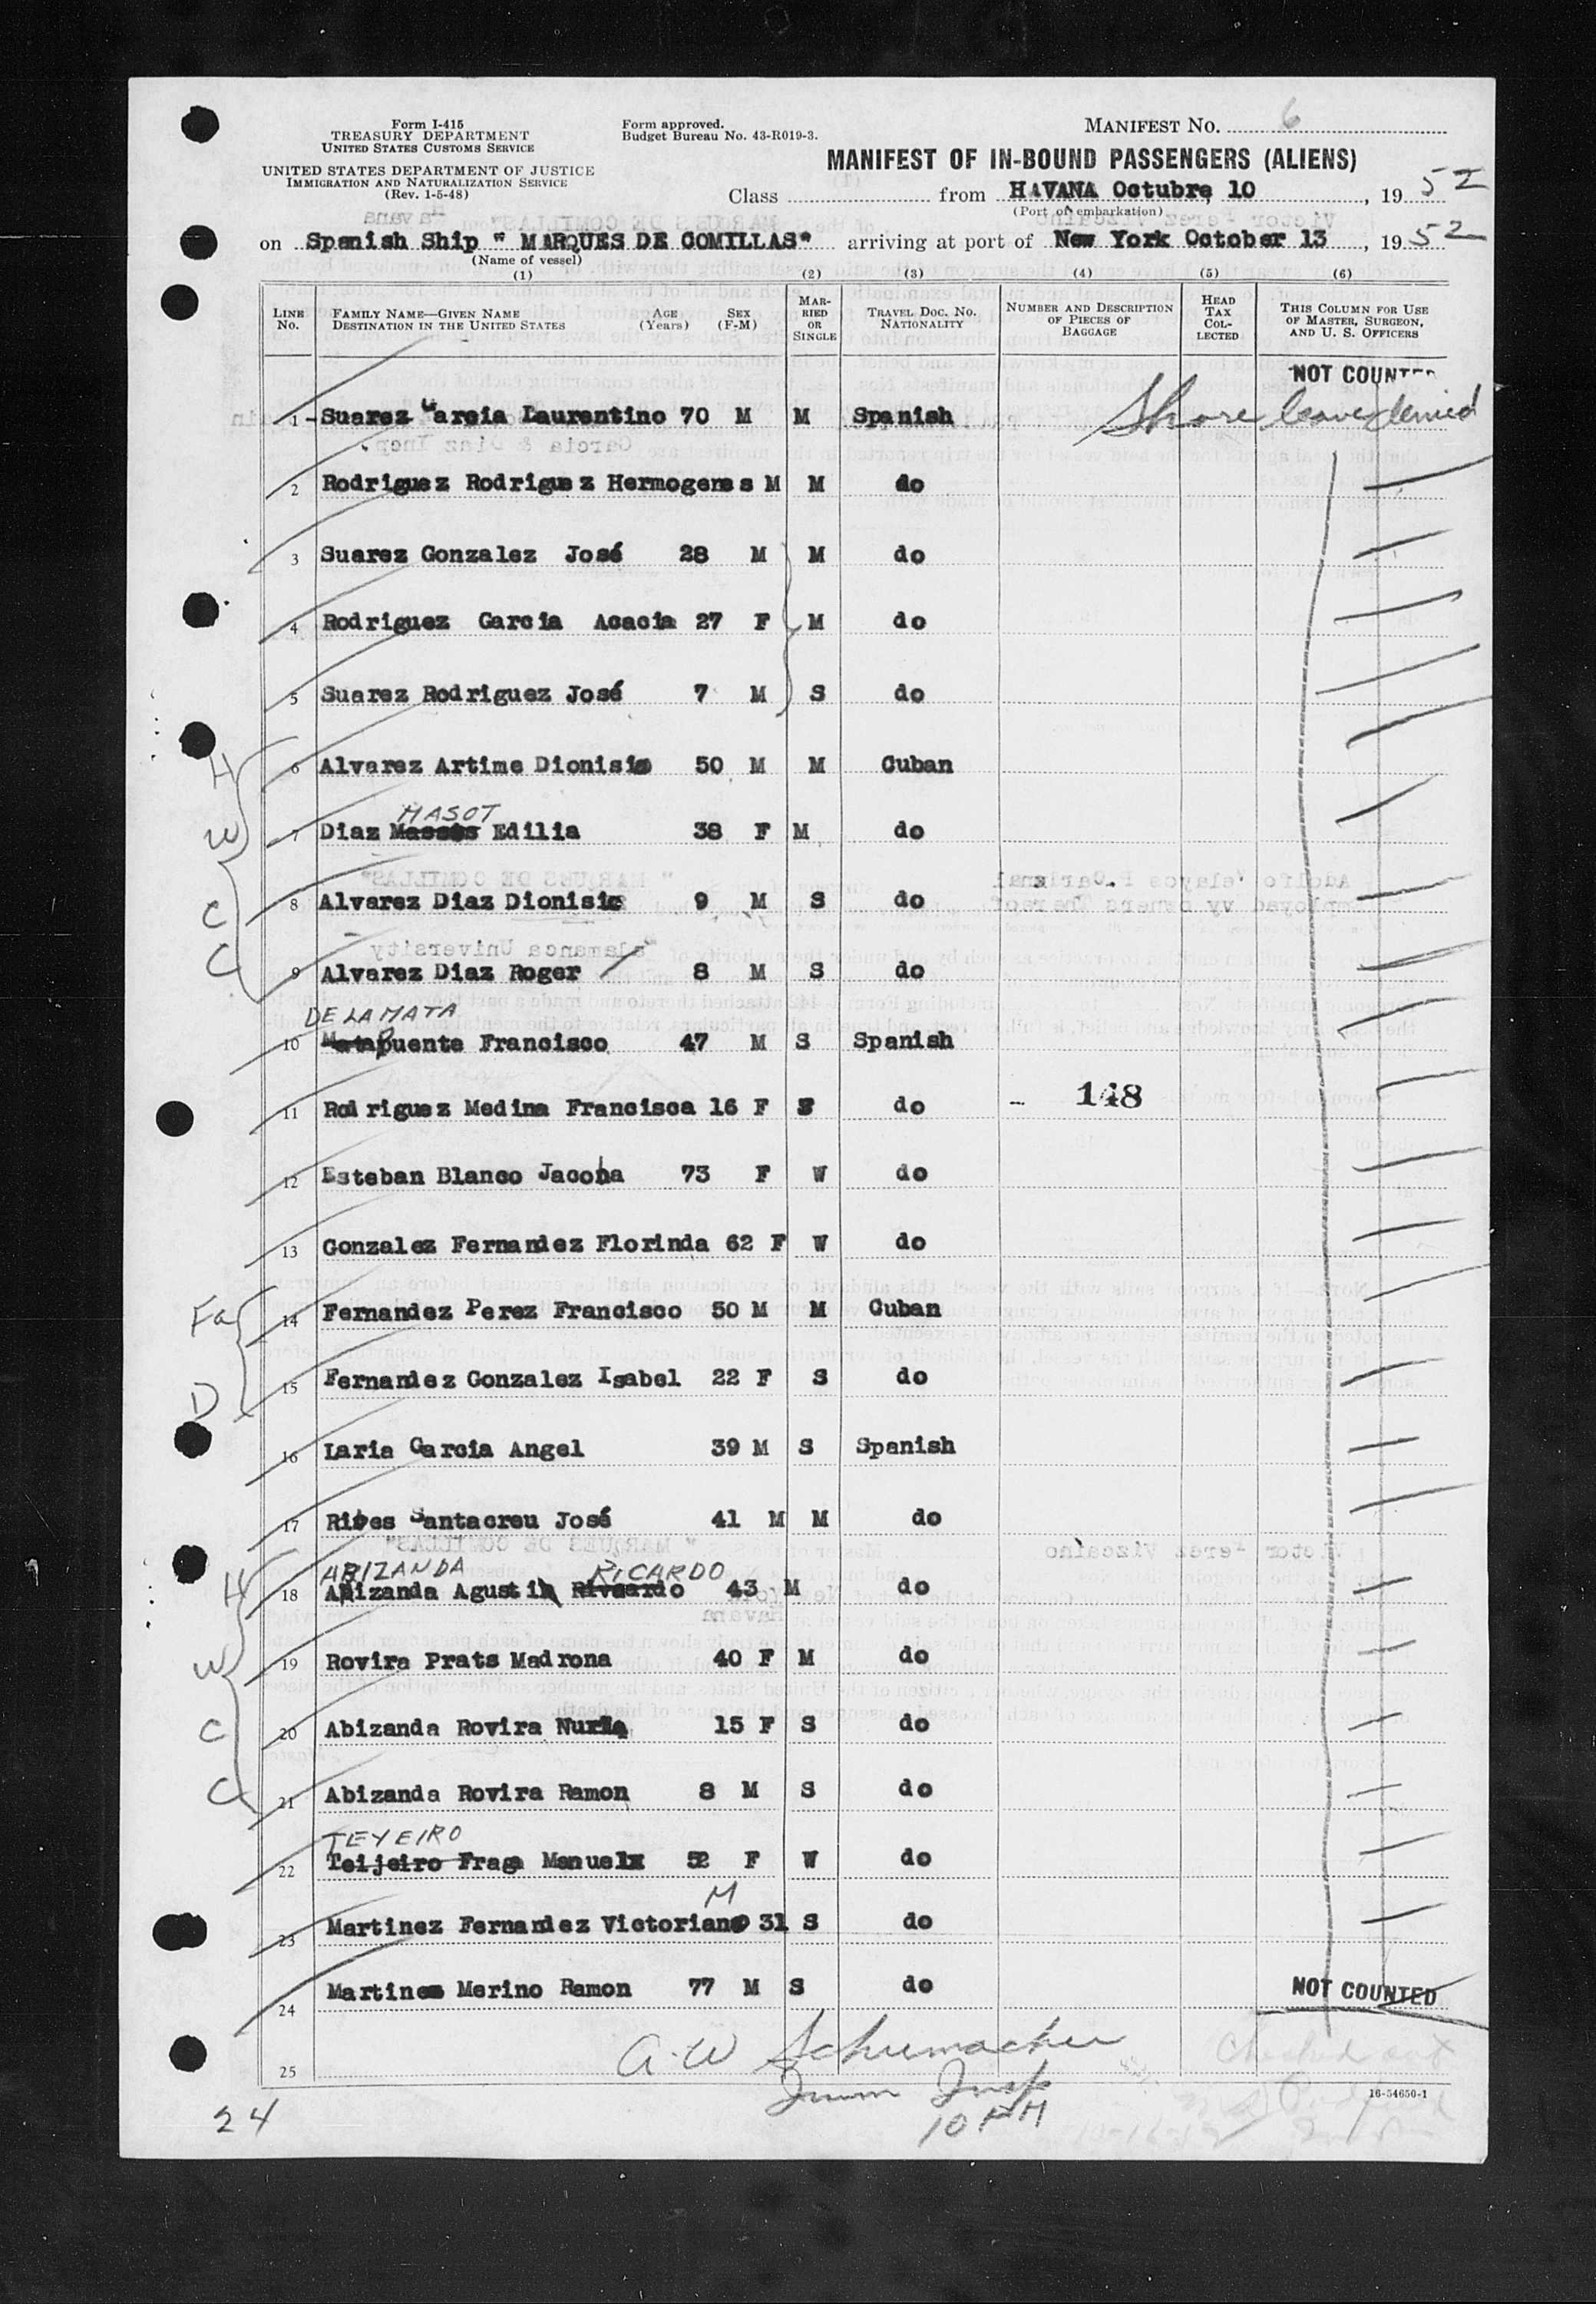 Form I-415
TREASURY DEPARTMENT
UNITED STATES CUSTOMS SERVICE
UNITED STATES DEPARTMENT OF JUSTICE
IMMIGRATION AND NATURALIZATION SERVICE
(Rev. 1-5-48)
Form approved.
Budget Bureau No. 43-R019-3.
MANIFEST No. 6
MANIFEST OF IN-BOUND PASSENGERS (ALIENS)
Class from HAVANA Octubre, 10, 1952
(Port of embarkation)
on Spanish Ship " MARQUES DE COMILLAS" arriving at port of New York October 13, 1952
(Name of vessel)
(1) (2) (3) (4) (5) (6)
LINE No. FAMILY NAME—GIVEN NAME DESTINATION IN THE UNITED STATES AGE (Years) SEX (F-M) MARRIED OR SINGLE TRAVEL DOC. NO. NATIONALITY NUMBER AND DESCRIPTION OF PIECES OF BAGGAGE HEAD TAX COLLECTED THIS COLUMN FOR USE OF MASTER, SURGEON, AND U. S. OFFICERS
NOT COUNTED
1 Suarez Garcia Laurentino 70 M M Spanish Shore leave denied
2 Rodriguez Rodriguez Hermogenes M M do
3 Suarez Gonzalez José 28 M M do
4 Rodriguez Garcia Acacia 27 F M do
5 Suarez Rodriguez José 7 M S do
H 6 Alvarez Artime Dionisio 50 M M Cuban
MASOT
W 7 Diaz Edilia 38 F M do
C 8 Alvarez Diaz Dionisio 9 M S do
C 9 Alvarez Diaz Roger 8 M S do
DE LA MATA
10 Matapuente Francisco 47 M S Spanish
11 Rodriguez Medina Francisca 16 F S do - 148
12 Esteban Blanco Jacoba 73 F W do
13 Gonzalez Fernandez Florinda 62 F W do
Fa 14 Fernandez Perez Francisco 50 M M Cuban
D 15 Fernandez Gonzalez Isabel 22 F S do
16 Laria Garcia Angel 39 M S Spanish
17 Ribes Santacreu José 41 M M do
ABIZANDA RICARDO
H 18 Abizanda Agustin 43 M do
W 19 Rovira Prats Madrona 40 F M do
C 20 Abizanda Rovira Nuria 15 F S do
C 21 Abizanda Rovira Ramon 8 M S do
TEYEIRO
22 Teijeiro Fraga Manuela 52 F W do
M
23 Martinez Fernandez Victoriano 31 S do
24 Martinez Merino Ramon 77 M S do NOT COUNTED
A. W Schumacher
25
Imm Insp
16-54650-1
24
10 PM
Checked out